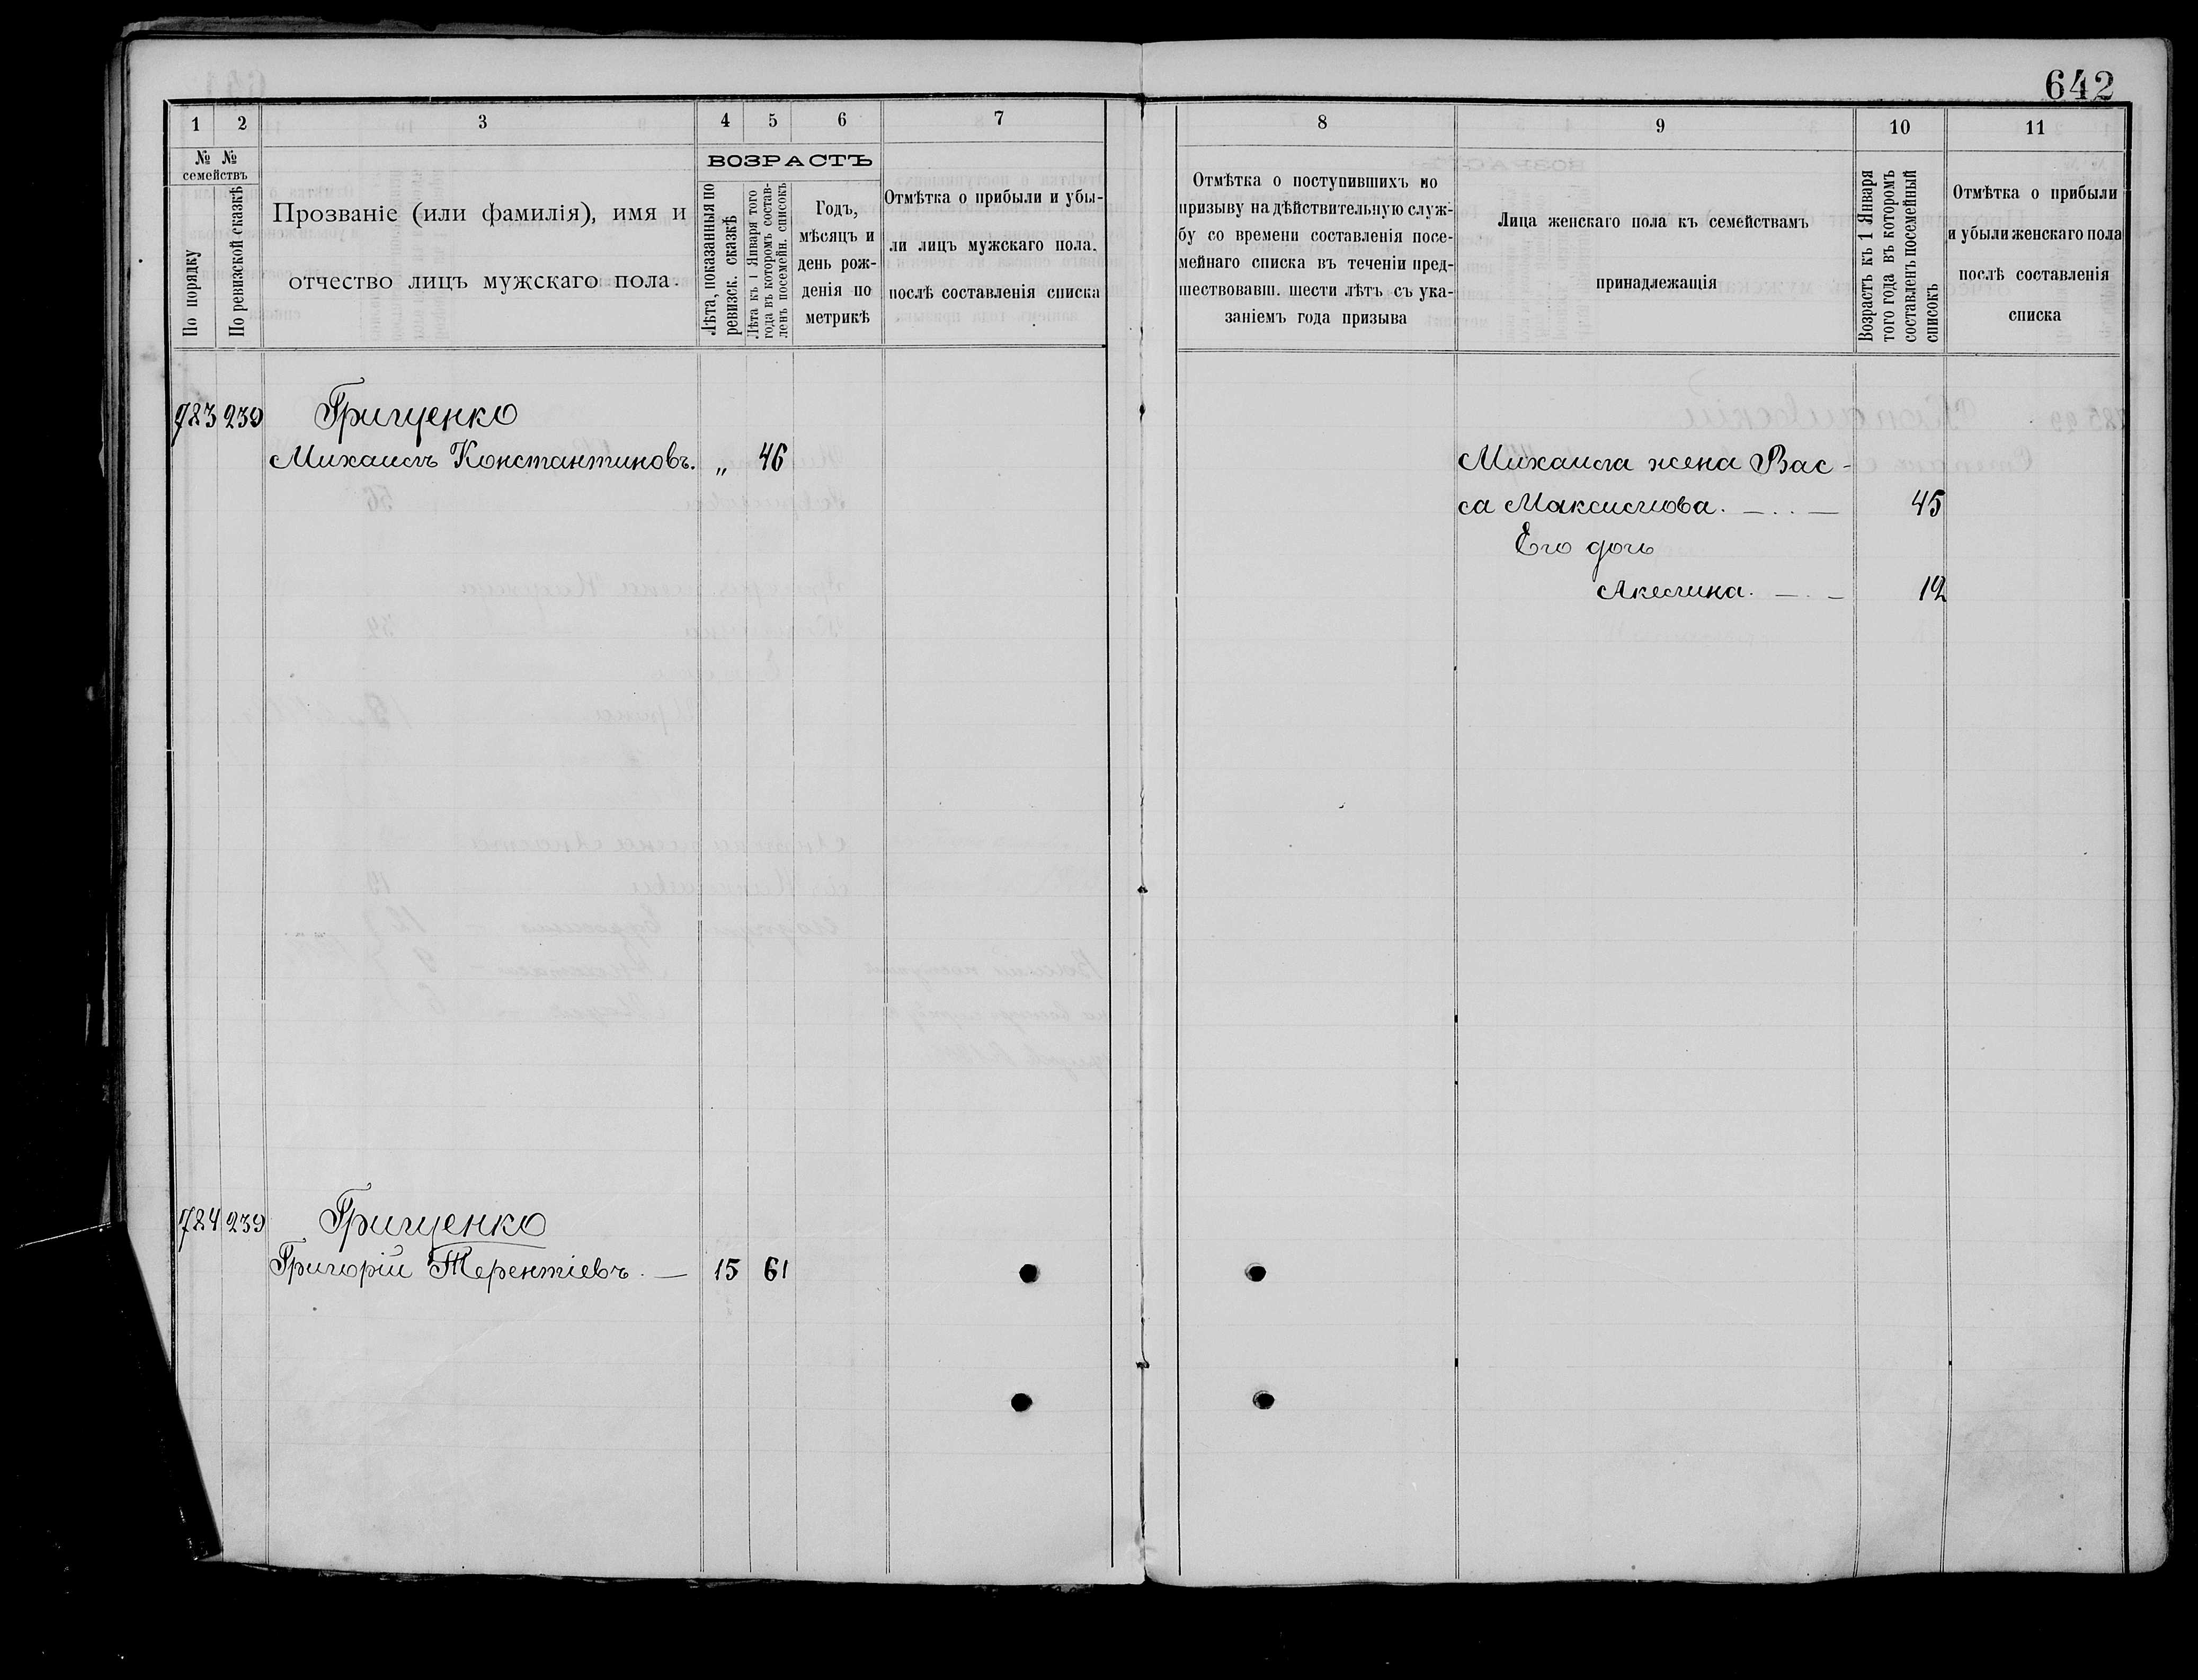 642
1 2 3 4 5 6 7
№ № семействъ
По порядку
По ревизской сказкѣ
Прозваніе (или фамилія), имя и
отчество лицъ мужскаго пола.
ВОЗРАСТЪ
Лѣта, показанныя по
ревизск. сказкѣ
Лѣта къ 1 Января того
года въ которомъ состав-
ленъ посемейн. списокъ
Годъ,
мѣсяцъ и
день рож-
денія по
метрикѣ
Отмѣтка о прибыли и убы-
ли лицъ мужскаго пола,
послѣ составленія списка
8 9 10 11
Отмѣтка о поступившихъ по
призыву на дѣйствительную служ-
бу со времени составленія посе-
мейнаго списка въ теченіи пред-
шествовавш. шести лѣтъ съ ука-
заніемъ года призыва
Лица женскаго пола къ семействамъ
принадлежащія
Возрастъ къ 1 Января
того года въ которомъ
составленъ посемейный
списокъ
Отмѣтка о прибыли
и убыли женскаго пола
послѣ составленія
списка
783 239 Грищенко
Михаилъ Константиновъ. „ 46
Михаила жена Вас-
са Максимова. 45
Его дочь
Акелина. 12
784 239 Грищенко
Григорій Терентіевъ. — 15 61